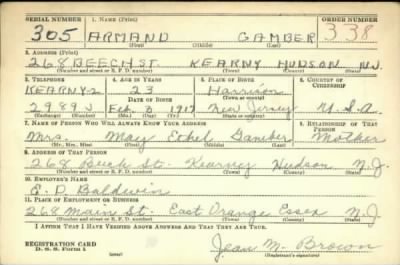 SERIAL NUMBER 1. NAME (Print) ORDER NUMBER
305 ARMAND GAMBER 338
(First) (Middle) (Last)
2. ADDRESS (Print)
268 BEECH ST. KEARNY HUDSON N.J.
(Number and street or R. F. D. number) (Town) (County) (State)
3. TELEPHONE 4. AGE IN YEARS 5. PLACE OF BIRTH 6. COUNTRY OF CITIZENSHIP
KEARNY-2 23 Harrison
DATE OF BIRTH (Town or county)
2989 J Feb. 1917 New Jersey U.S.A.
(Exchange) (Number) (Mo.) (Day) (Yr.) (State or country)
7. NAME OF PERSON WHO WILL ALWAYS KNOW YOUR ADDRESS 8. RELATIONSHIP OF THAT PERSON
Mrs. May Ethel Gamber Mother
(Mr., Mrs., Miss) (First) (Middle) (Last)
9. ADDRESS OF THAT PERSON
268 Beech St. Kearney Hudson N.J.
(Number and street or R. F. D. number) (Town) (County) (State)
10. EMPLOYER'S NAME
E. D. Baldwin
11. PLACE OF EMPLOYMENT OR BUSINESS
268 Main St. East Orange Essex N.J.
(Number and street or R. F. D. number) (Town) (County) (State)
I AFFIRM THAT I HAVE VERIFIED ABOVE ANSWERS AND THAT THEY ARE TRUE.
REGISTRATION CARD
D. S. S. Form 1
Jean M. Brown
(Registrant's signature)